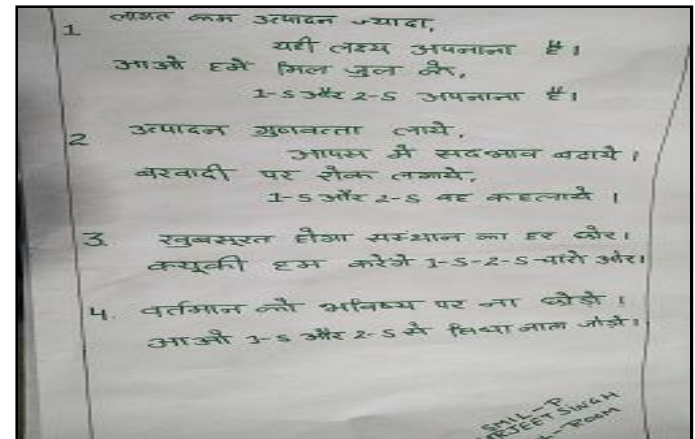 1 लागत कम उत्पादन ज्यादा,
यही लक्ष्य अपनाना है।
आओ हमें मिल जुल के,
1-S और 2-S अपनाना है।
2 उत्पादन गुणवत्ता लाये,
आपस में सदभाव बढाये।
बरबादी पर रोक लगाये,
1-S और 2-S वह कहलाये।
3. खुबसूरत होगा सस्थान का हर छोर।
क्यूकी हम करेंगे 1-S-2-S चारो ओर।
4. वर्तमान को भविष्य पर ना छोडो।
आओ 1-S और 2-S से नाता जोडो।
SMIL-P
SINGH
ROOM